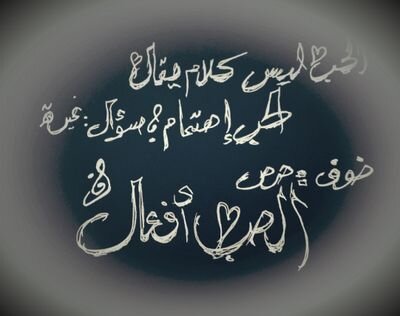 الحب ليس كلام يقال
الحب إهتمام و سؤال : غيرة
خوف : حرص
الحب أفعال